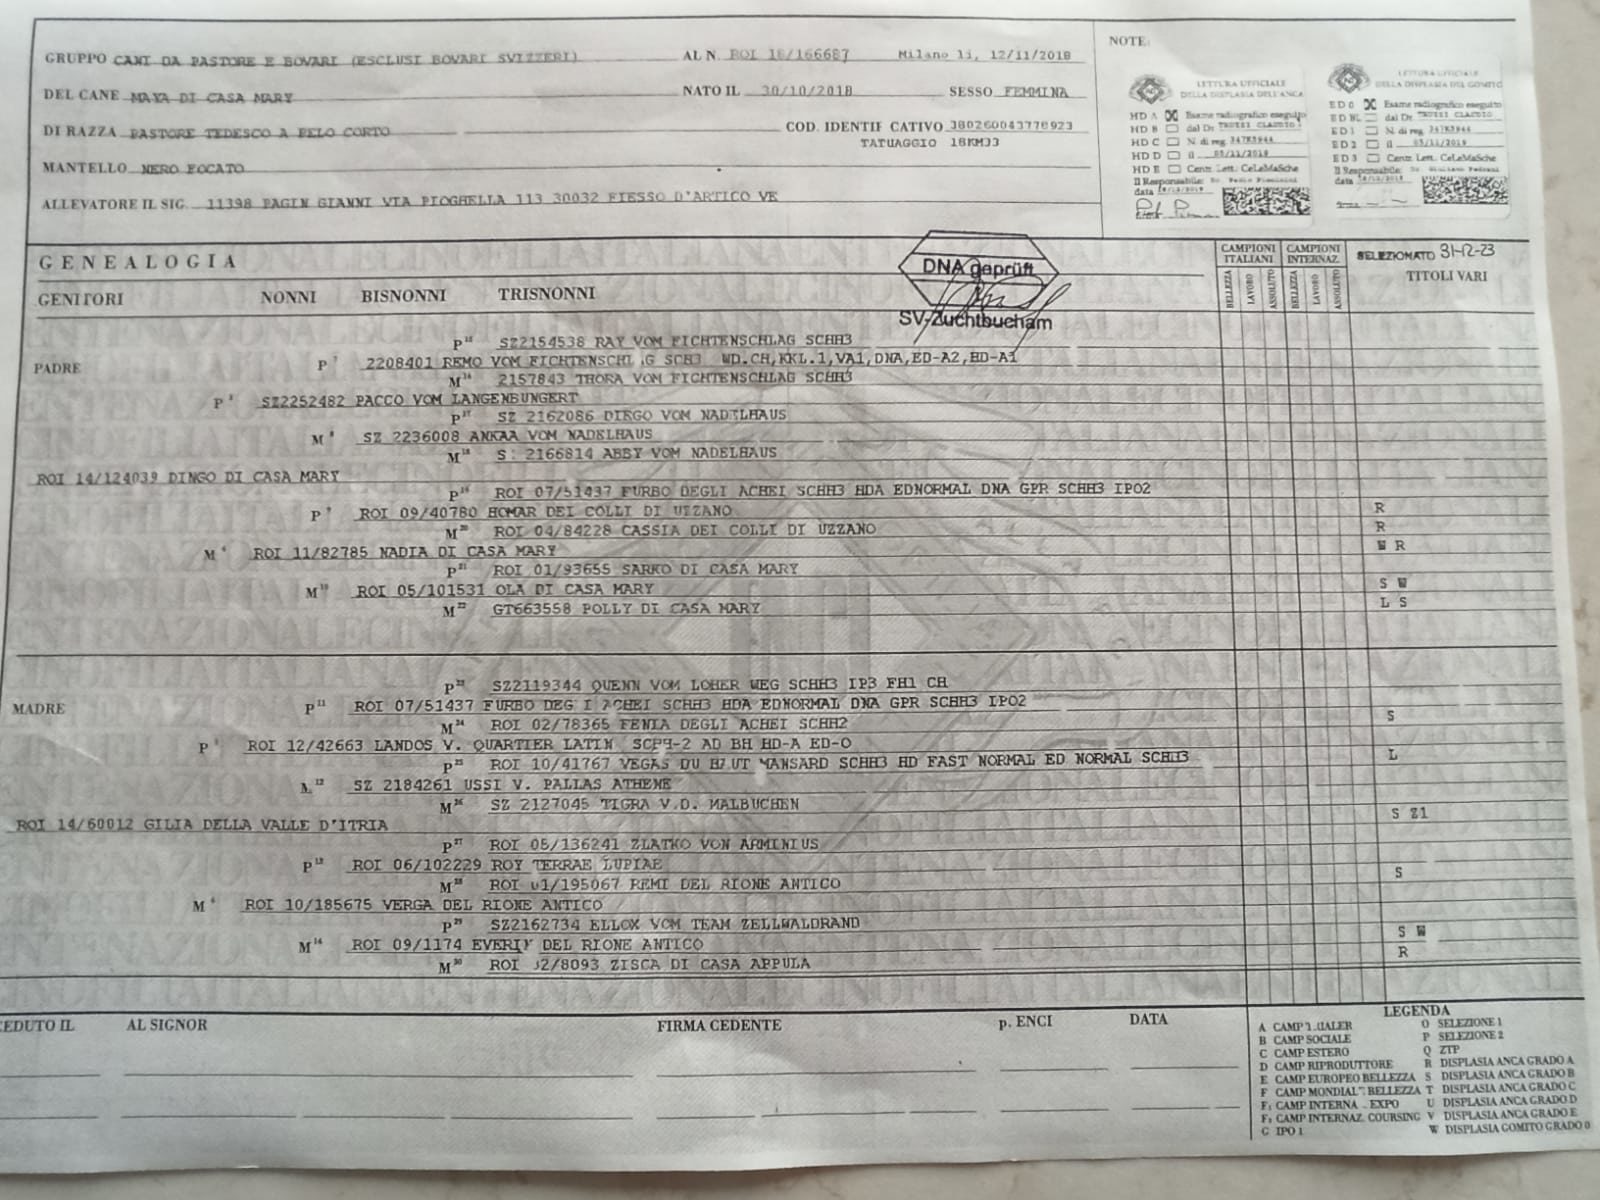 GRUPPO CANI DA PASTORE E BOVARI (ESCLUSI BOVARI SVIZZERI) AL N. ROI 18/166687 Milano li, 12/11/2018
NOTE:
DEL CANE MAYA DI CASA MARY NATO IL 30/10/2018 SESSO FEMMINA
DI RAZZA PASTORE TEDESCO A PELO CORTO COD. IDENTIF CATIVO 380260043770923
TATUAGGIO 18KM33
MANTELLO NERO FOCATO
ALLEVATORE IL SIG. 11398 PAGIN GIANNI VIA PIOGHELLA 113 30032 FIESSO D'ARTICO VE
LETTURA UFFICIALE
DELLA DISPLASIA DELL'ANCA
HD A Esame radiografico eseguito
HD B dal Dr TRUZZI CLAUDIO
HD C N. di reg. 347K3944
HD D il 05/11/2019
HD E Centr. Lett. CeLeMaSche
Il Responsabile:
data
LETTURA UFFICIALE
DELLA DISPLASIA DEL GOMITO
ED 0 Esame radiografico eseguito
ED BL dal Dr TRUZZI CLAUDIO
ED 1 N. di reg. 347K3944
ED 2 il 05/11/2019
ED 3 Centr. Lett. CeLeMaSche
Il Responsabile:
data
GENEALOGIA
DNA geprüft
SV-Zuchtbucham
CAMPIONI ITALIANI CAMPIONI INTERNAZ. SELEZIONATO 31-12-23
BELLEZZA LAVORO ASSOLUTO BELLEZZA LAVORO ASSOLUTO TITOLI VARI
GENITORI NONNI BISNONNI TRISNONNI
P 15 SZ2154538 RAY VOM FICHTENSCHLAG SCHH3
PADRE P 7 2208401 REMO VOM FICHTENSCHL G SCH3 WD.CH,KKL.1,VA1,DNA,ED-A2,HD-A1
M 16 2157843 THORA VOM FICHTENSCHLAG SCHH3
P 3 SZ2252482 PACCO VOM LANGENBUNGERT
P 17 SZ 2162086 DIEGO VOM NADELHAUS
M 8 SZ 2236008 ANKAA VOM NADELHAUS
M 18 S: 2166814 ABBY VOM NADELHAUS
ROI 14/124039 DINGO DI CASA MARY
P 19 ROI 07/51437 FURBO DEGLI ACHEI SCHH3 HDA EDNORMAL DNA GPR SCHH3 IPO2
P 9 ROI 09/40780 HOMAR DEI COLLI DI UZZANO R
M 20 ROI 04/84228 CASSIA DEI COLLI DI UZZANO R
M 4 ROI 11/82785 NADIA DI CASA MARY W R
P 21 ROI 01/93655 SARKO DI CASA MARY
M 10 ROI 05/101531 OLA DI CASA MARY S W
M 22 GT663558 POLLY DI CASA MARY L S
P 23 SZ2119344 QUENN VOM LOHER WEG SCHH3 IP3 FH1 CH
MADRE P 11 ROI 07/51437 FURBO DEG I ACHEI SCHH3 HDA EDNORMAL DNA GPR SCHH3 IPO2
M 24 ROI 02/78365 FENIA DEGLI ACHEI SCHH2 S
P 5 ROI 12/42663 LANDOS V. QUARTIER LATIN SCHH-2 AD BH HD-A ED-0
P 25 ROI 10/41767 VEGAS DU HAUT MANSARD SCHH3 HD FAST NORMAL ED NORMAL SCHH3 L
M 12 SZ 2184261 USSI V. PALLAS ATHENE
M 26 SZ 2127045 TIGRA V.D. MALBUCHEN S Z1
ROI 14/60012 GILIA DELLA VALLE D'ITRIA
P 27 ROI 05/136241 ZLATKO VON ARMINIUS
P 13 ROI 06/102229 ROY TERRAE LUPIAE S
M 28 ROI 01/195067 REMI DEL RIONE ANTICO
M 6 ROI 10/185675 VERGA DEL RIONE ANTICO
P 29 SZ2162734 ELLOX VOM TEAM ZELLWALDRAND S W
M 14 ROI 09/1174 EVERLY DEL RIONE ANTICO R
M 30 ROI 02/8093 ZISCA DI CASA APPULA
CEDUTO IL AL SIGNOR FIRMA CEDENTE p. ENCI DATA
LEGENDA
A CAMP O SELEZIONE 1
B CAMP SOCIALE P SELEZIONE 2
C CAMP ESTERO Q ZTP
D CAMP RIPRODUTTORE R DISPLASIA ANCA GRADO A
E CAMP EUROPEO BELLEZZA S DISPLASIA ANCA GRADO B
F CAMP MONDIAL BELLEZZA T DISPLASIA ANCA GRADO C
F1 CAMP INTERNA EXPO U DISPLASIA ANCA GRADO D
F2 CAMP INTERNAZ. COURSING V DISPLASIA ANCA GRADO E
G IPO 1 W DISPLASIA GOMITO GRADO 0